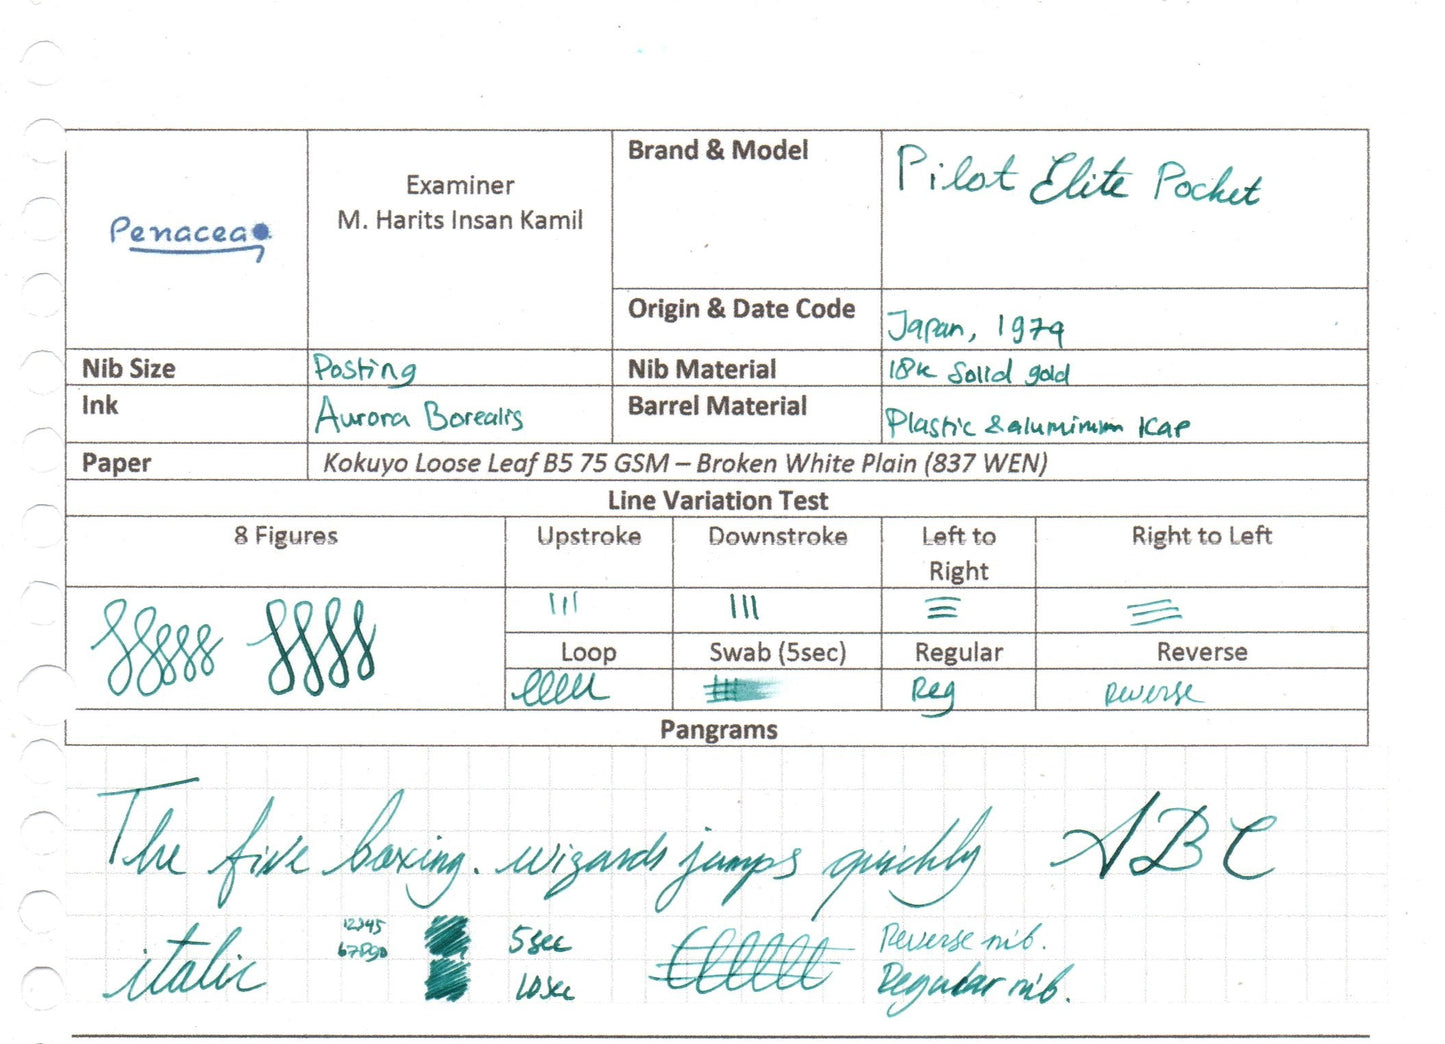 Penacea
Examiner
M. Harits Insan Kamil
Brand & Model
Pilot Elite Pocket
Origin & Date Code
Japan, 1979
Nib Size
Posting
Nib Material
18k Solid gold
Ink
Aurora Borealis
Barrel Material
Plastic & aluminium cap
Paper
Kokuyo Loose Leaf B5 75 GSM – Broken White Plain (837 WEN)
Line Variation Test
8 Figures
Upstroke
Downstroke
Left to
Right
Right to Left
Loop
Swab (5sec)
Regular
Reverse
Reg
Reverse
Pangrams
The five boxing. wizards jumps quickly
ABC
italic
12345
67890
5sec
10sec
Reverse nib.
Regular nib.